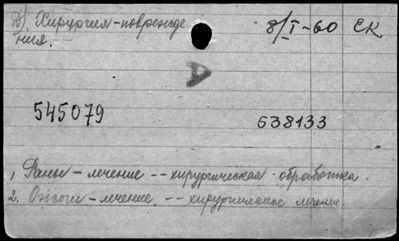 Д) Хирургия - поврежде 8/I-60 ЕК
ния.
А
545079 638133
1, Раны - лечение -- хирургическая обработка.
2. Ожоги - лечение. -- хирургическое лечение